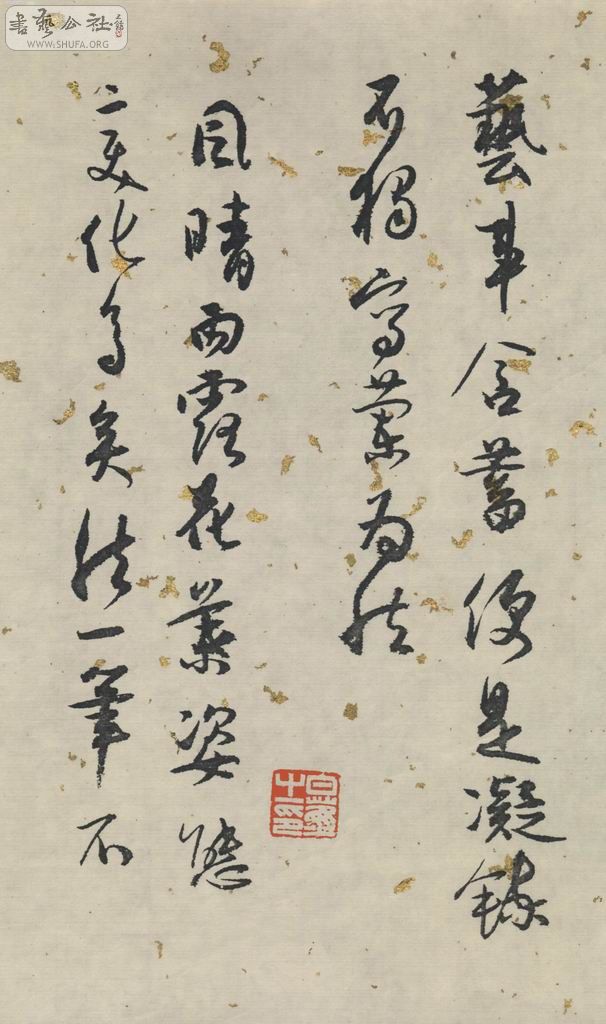 書藝公社
WWW.SHUFA.ORG
藝事含蓄便是凝鍊
不獨寫蘭為然
風晴雨露花葉姿態
之變化多矣然一筆不